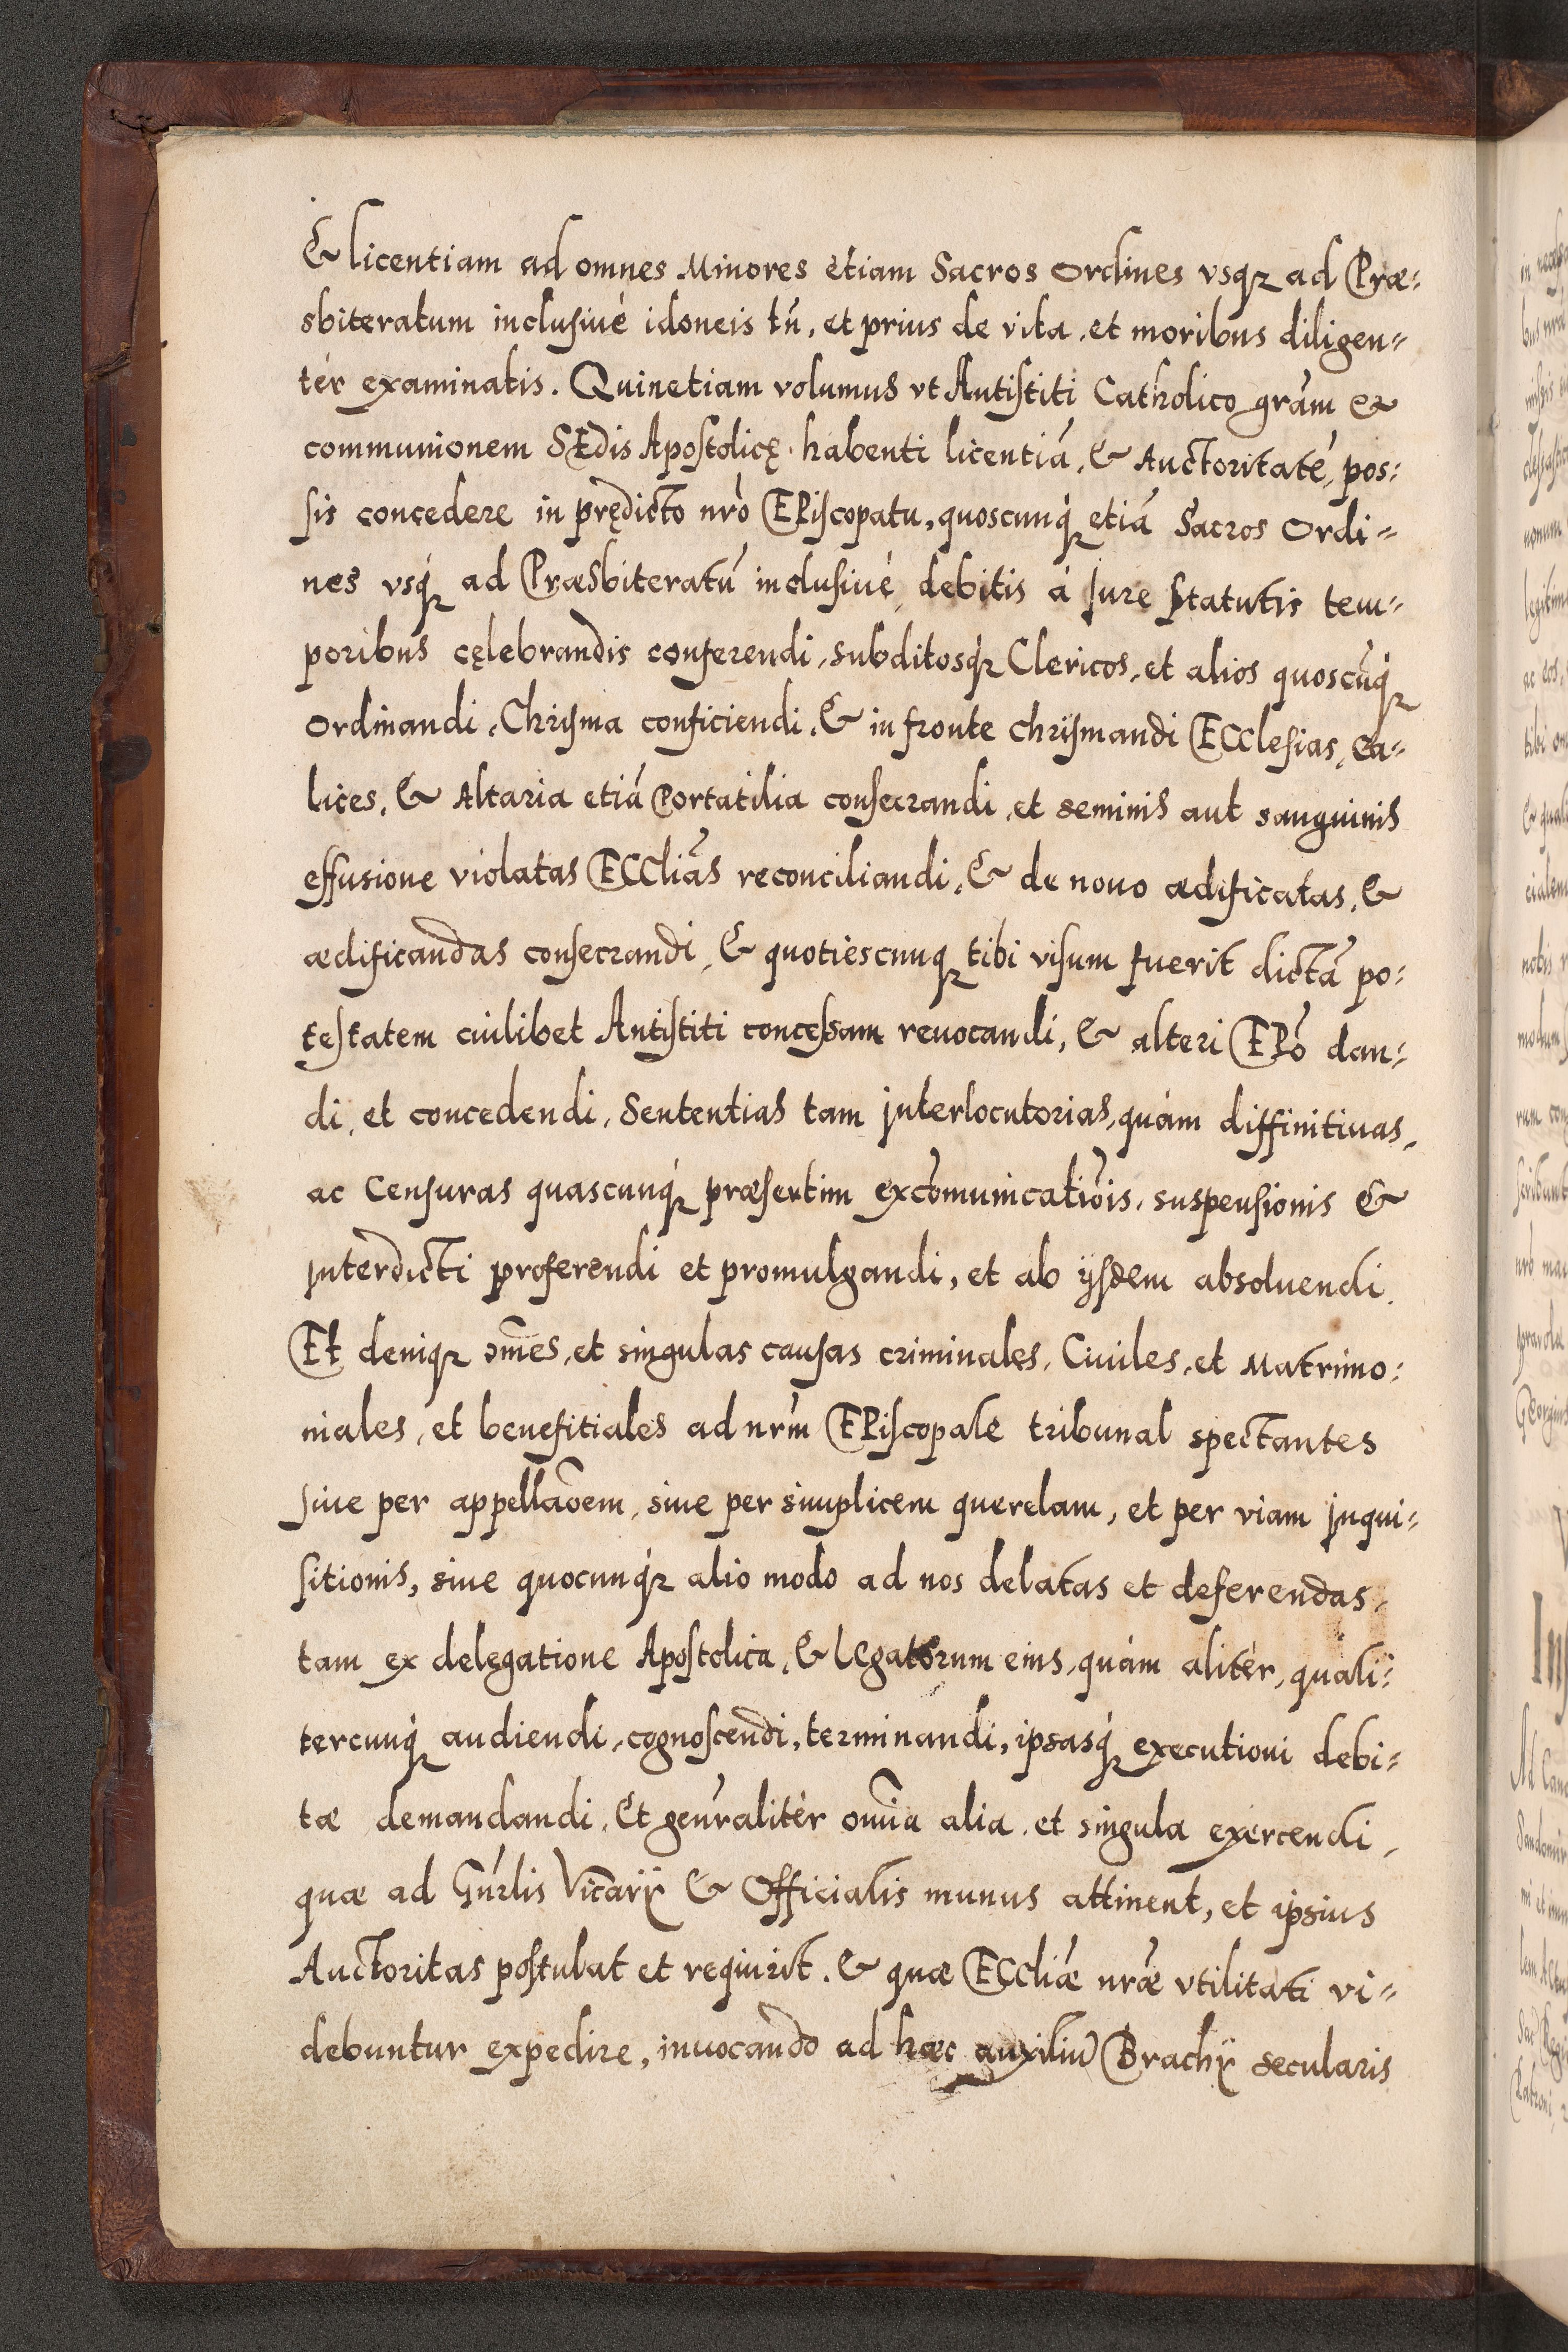 & licentiam ad omnes Minores etiam Sacros Ordines vsqz ad Præ=
sbiteratum inclusiué idoneis tñ, et prius de vita, et moribus diligen=
tér examinatis. Quinetiam volumus vt Antistiti Catholico grãm &
communionem SEdis Apostolicę habenti licentiã, & Auctoritatẽ, pos=
sis concedere in prędicto nrõ EPiscopatu, quoscunqz etiã Sacros Ordi=
nes vsqz ad Præsbiteratũ inclusiué, debitis á Jure Statutis tem=
poribus cęlebrandis conferendi, subditosqz Clericos, et alios quoscũqz
Ordinandi, Chrisma conficiendi, & in fronte chrismandi ECClesias, Ca=
lices, & Altaria etiã Portatilia consecrandi, et seminis aut sanguinis
effusione violatas ECCliãs reconciliandi, & de nouo ædificatas, &
ædificandas consecrandi, & quotiescunqz tibi visum fuerit dictã po=
testatem cuilibet Antistiti concessam reuocandi, & alteri EPõ dan=
di, et concedendi, Sententias tam jnterlocutorias, quám diffinitiuas,
ac Censuras quascunqz præsertim excõmunicatiõis, suspensionis &
jnterdicti proferendi et promulgandi, et ab ijsdem absoluendi.
Et deniqz õmes, et singulas causas criminales, Ciuiles, et Matrimo=
niales, et benefitiales ad nrm̃ EPiscopale tribunal spectantes
siue per appellaõem, siue per simplicem querelam, et per viam jnqui=
sitionis, siue quocunqz alio modo ad nos delatas et deferendas,
tam ex delegatione Apostolica, & LEgatorum eius, quám alitér, quali=
tercunqz audiendi, cognoscendi, terminandi, ipsasqz executioni debi=
tæ demandandi, Et genr̃alitér om̃ia alia, et singula exercendi,
quæ ad Gñrlis Vicãrÿ & Officialis munus attinent, et ipsius
Auctoritas postulat et requirit. & quæ ECCliæ̃ nræ̃ vtilitati vi=
debuntur expedire, inuocando ad hæc auxiliũ Brachÿ secularis